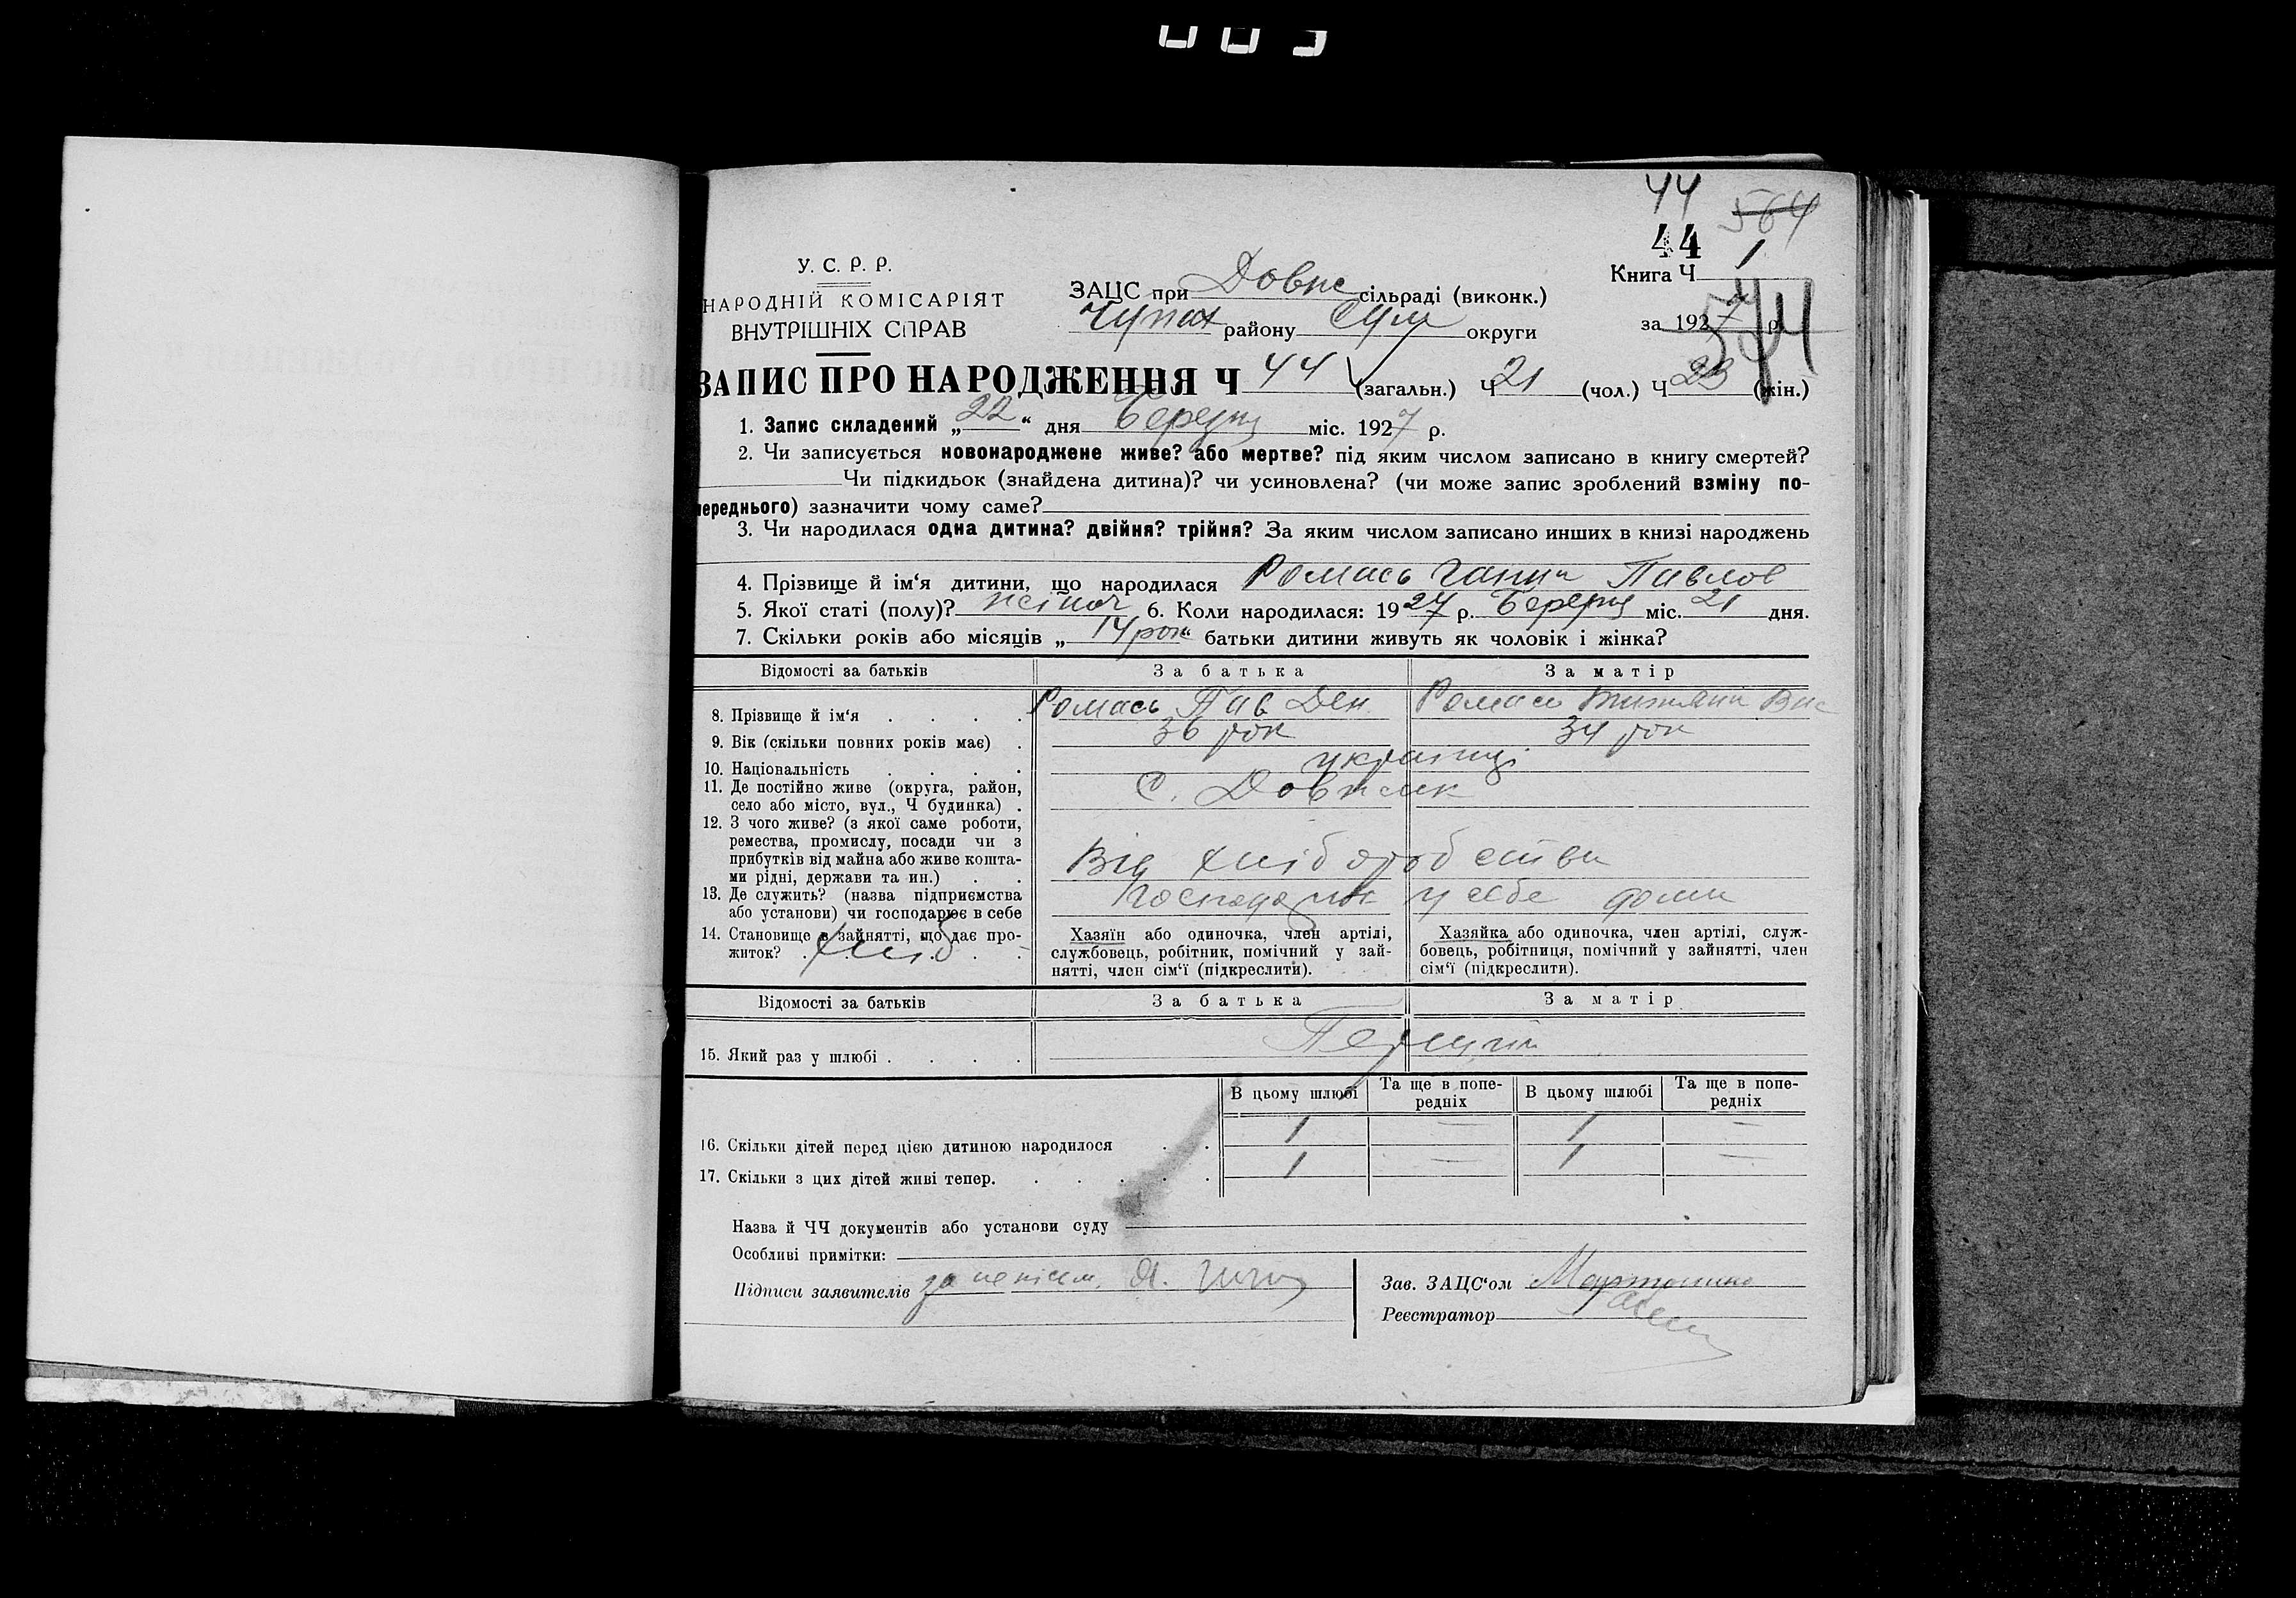 003
44 564
44
У. С. Р. Р.
НАРОДНІЙ КОМІСАРІЯТ
ВНУТРІШНІХ СПРАВ
ЗАЦС при Довж сільраді (виконк.)
Чупах району Сум округи
Книга Ч 1
за 1927 р.
544
ЗАПИС ПРО НАРОДЖЕННЯ Ч 44 (загальн.) Ч 21 (чол.) Ч 23 (жін.)
1. Запис складений „22“ дня Березня міс. 1927 р.
2. Чи записується новонароджене живе? або мертве? під яким числом записано в книгу смертей?
Чи підкидьок (знайдена дитина)? чи усиновлена? (чи може запис зроблений взміну по-
переднього) зазначити чому саме?
3. Чи народилася одна дитина? двійня? трійня? За яким числом записано инших в книзі народжень
4. Прізвище й ім‘я дитини, що народилася Ромась Ганна Павлов
5. Якої статі (полу)? жіноч 6. Коли народилася: 1927 р. Березня міс. 21 дня.
7. Скільки років або місяців „14 рок“ батьки дитини живуть як чоловік і жінка?
Відомості за батьків За батька За матір
8. Прізвище й ім‘я . . . . Ромась Пав Ден Ромась
9. Вік (скільки повних років має) . 36 рок 34 рок
10. Національність . . . . українці
11. Де постійно живе (округа, район,
село або місто, вул., Ч будинка) . С. Довжик
12. З чого живе? (з якої саме роботи,
ремества, промислу, посади чи з
прибутків від майна або живе кошта-
ми рідні, держави та ин.) . . Від хліборобства
13. Де служить? (назва підприємства
або установи) чи господарює в себе у себе дома
14. Становище в зайнятті, що дає про-
житок? . хліб . .
Хазяїн або одиночка, член артілі,
службовець, робітник, помічний у зай-
нятті, член сім‘ї (підкреслити).
Хазяйка або одиночка, член артілі, служ-
бовець, робітниця, помічний у зайнятті, член
сім‘ї (підкреслити).
Відомості за батьків За батька За матір
15. Який раз у шлюбі . . . . Перший
В цьому шлюбі Та ще в попе-редніх В цьому шлюбі Та ще в попе-редніх
16. Скільки дітей перед цією дитиною народилося . . 1 — 1 —
17. Скільки з цих дітей живі тепер. . . . . . 1 — 1 —
Назва й ЧЧ документів або установи суду
Особливі примітки:
Підписи заявителів за неписм.
Зав. ЗАЦС‘ом
Реєстратор